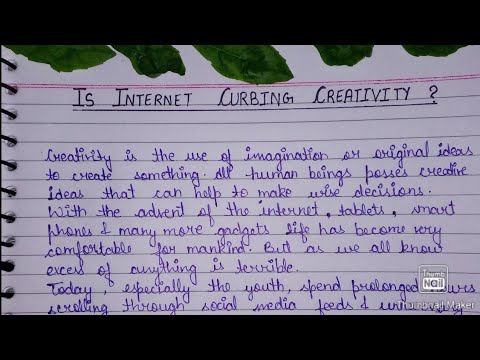 IS INTERNET CURBING CREATIVITY ?
Creativity is the use of imagination or original ideas
to create something. All human beings posses creative
ideas that can help to make wise decisions.
With the advent of the internet, tablets, smart
phones & many more gadgets life has become very
comfortable for mankind. But as we all know
excess of anything is terrible.
Today, especially the youth, spend prolonged hours
scrolling through social media feeds &
Thumb
Nail
Thumbnail Maker